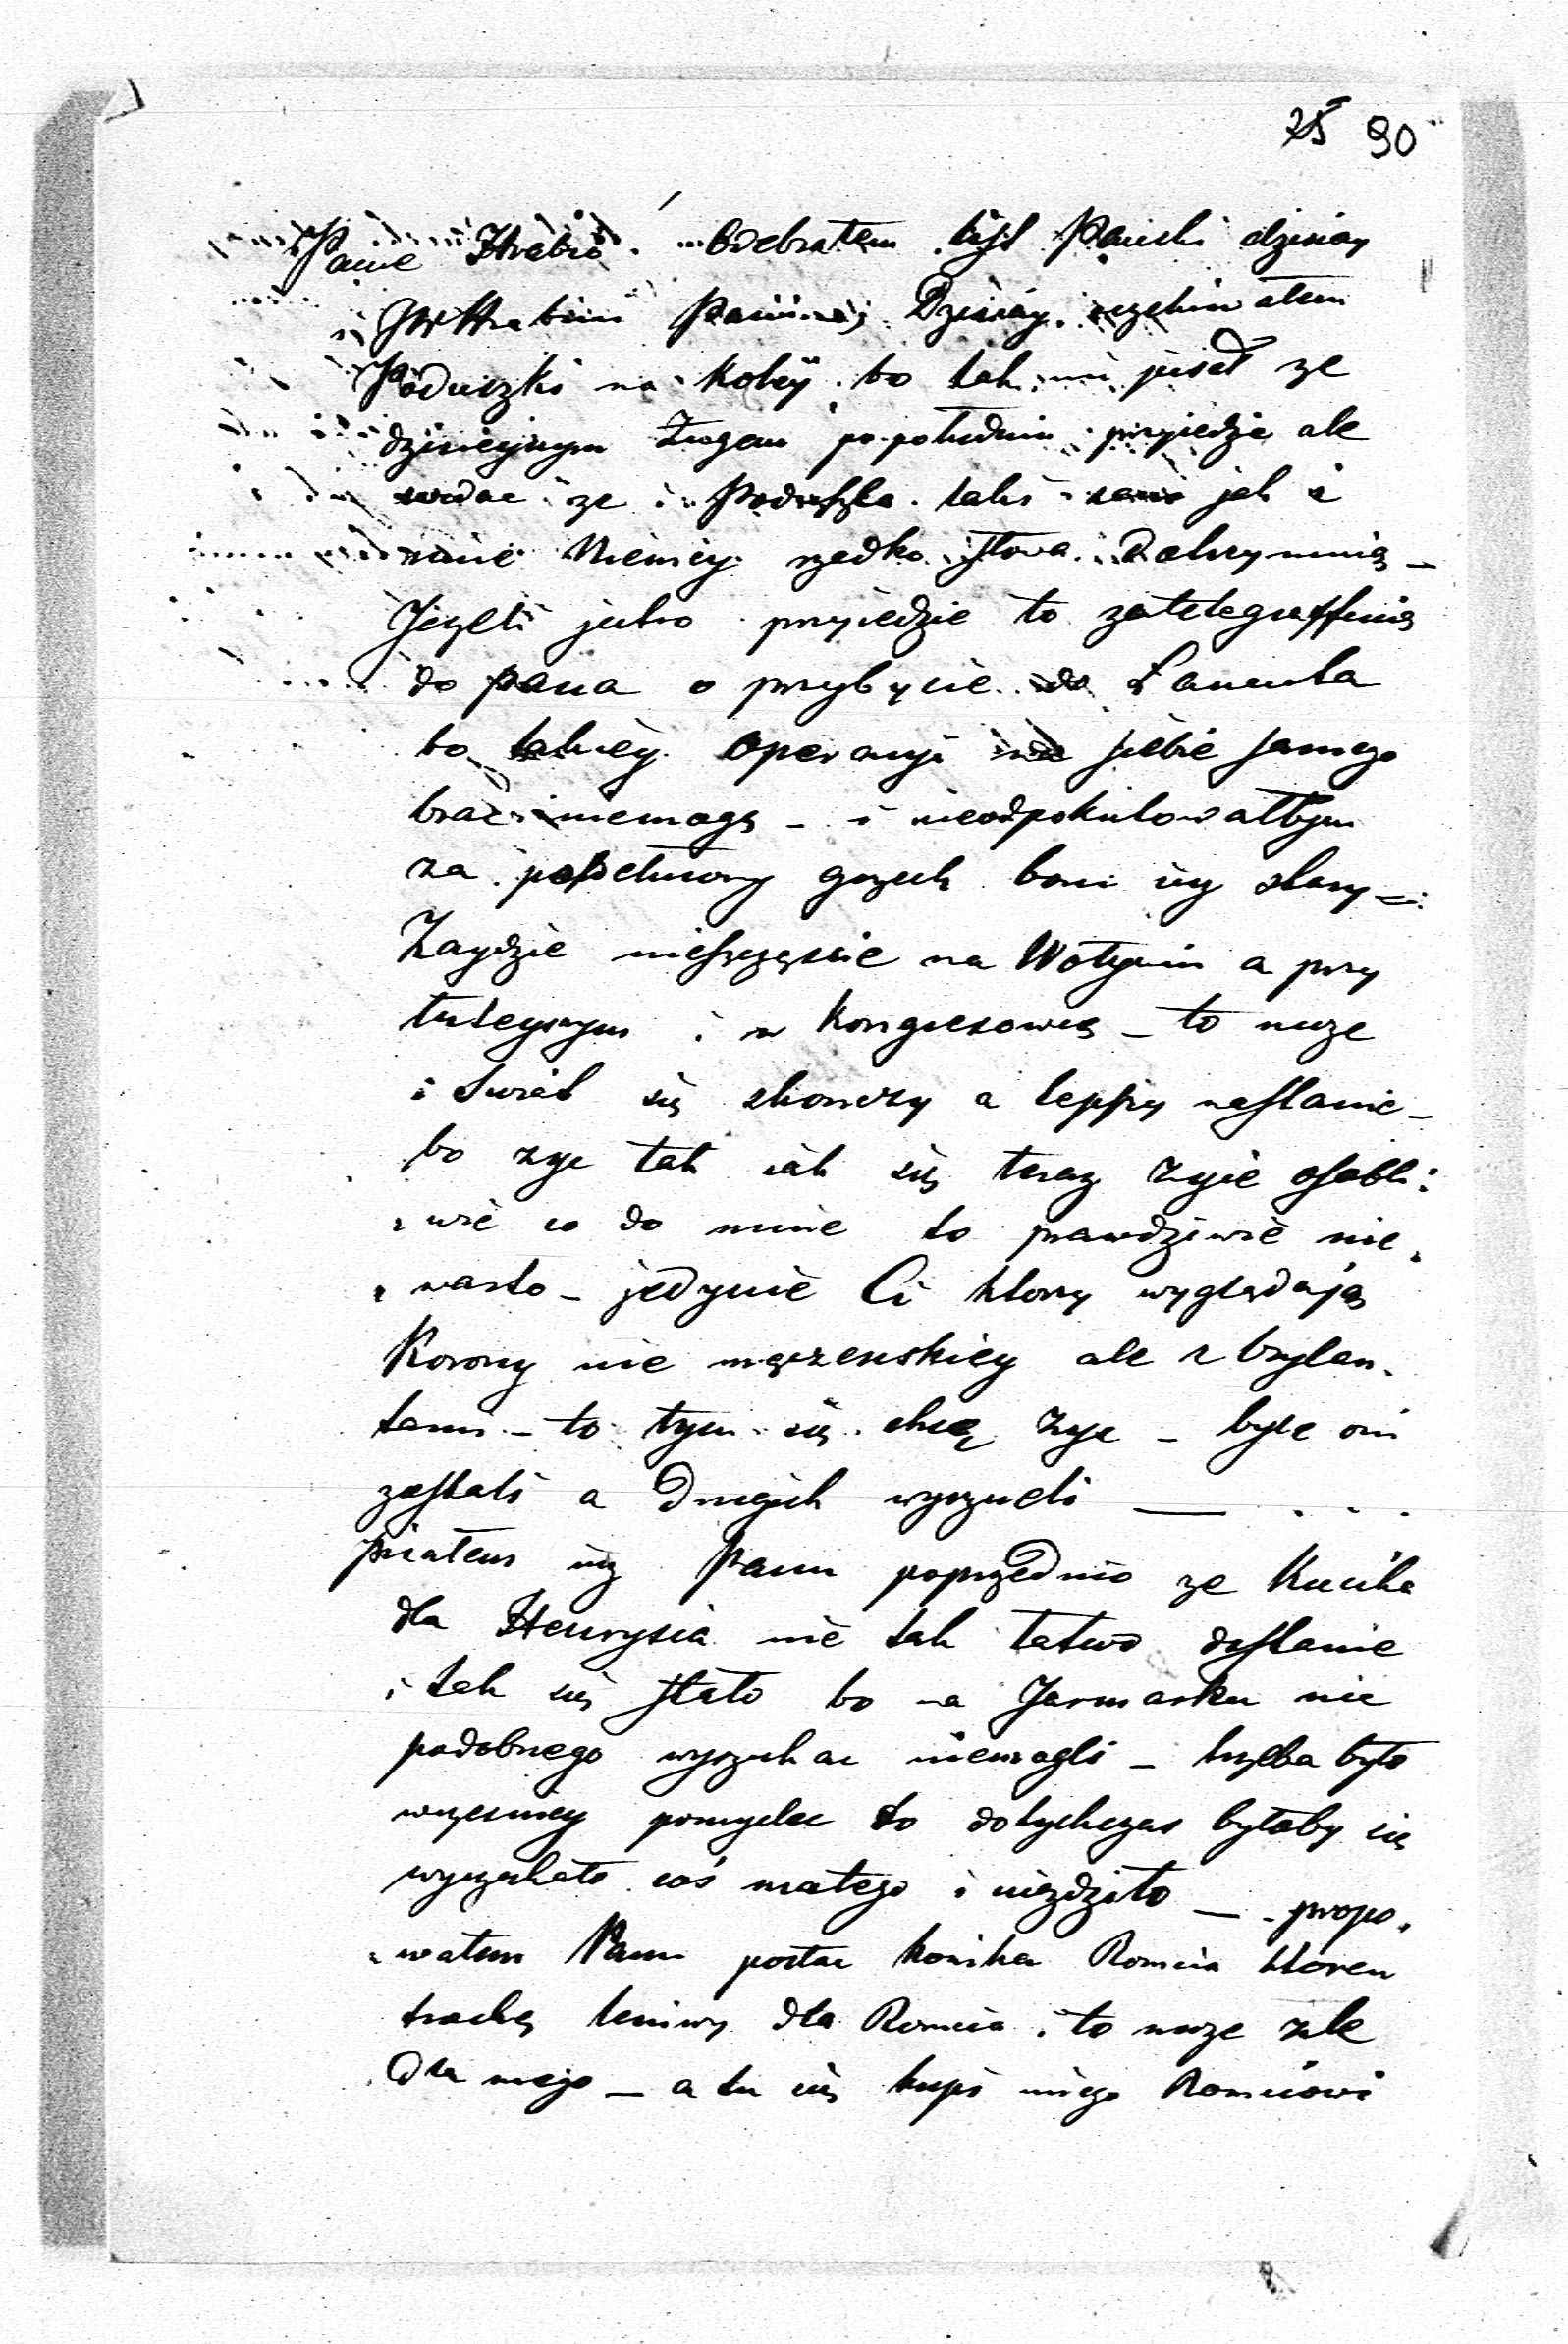 25 90
Panie Hrabio. Odebrałem list Pański dzisiay
JW Hrabini Dzisiay oczekiwałem
Poduszki na Koleÿ bo tak mi pisał ze
dzisieyszym Cugem popołudniu przyiedzie ale
widac ze i Poduszka taki sam jak i
inne Niemcy rzadko słowa Dotrzymuią –
Jezeli jutro przyiedzie to zatelegraffuię
do pana o przybycie do Łancuta
bo takiéy operacyi na siebie samego
brac niemogę – i nieodpokutowałbym
za popełniony grzech bom iuz stary –
Zaydzie nieszczęscie na Wołyniu a przy
tuteyszym i w Kongresowie – to moze
i Swiat się skonczy a lepszy nastanie –
bo zyc tak iak się teraz zyie osobli:
wie co do mnie to prawdziwie nie
warto – jedynie Ci ktorzy wyglądają
Korony nie męczenskiey ale z brylan
tami – to tym się chcę zyc – byle oni
zostali a Drugich wyrzucili — . . .
pisałem iuz Panu poprzednio ze Kucika
dla Henrysia nie tak łatwo dostanie
i tak się stało bo na Jarmarku nic
podobnego wyszukac niemogli – trzeba było
wczesniey pomyslec to dotychczas byłoby się
wyszukało coś małego i uiezdziło — propo
wałem Panu posłac konika Romcia ktoren
trochę leniwy dla Romcia i to moze zle
Dla niego – a tu się kupi innego Romciowi